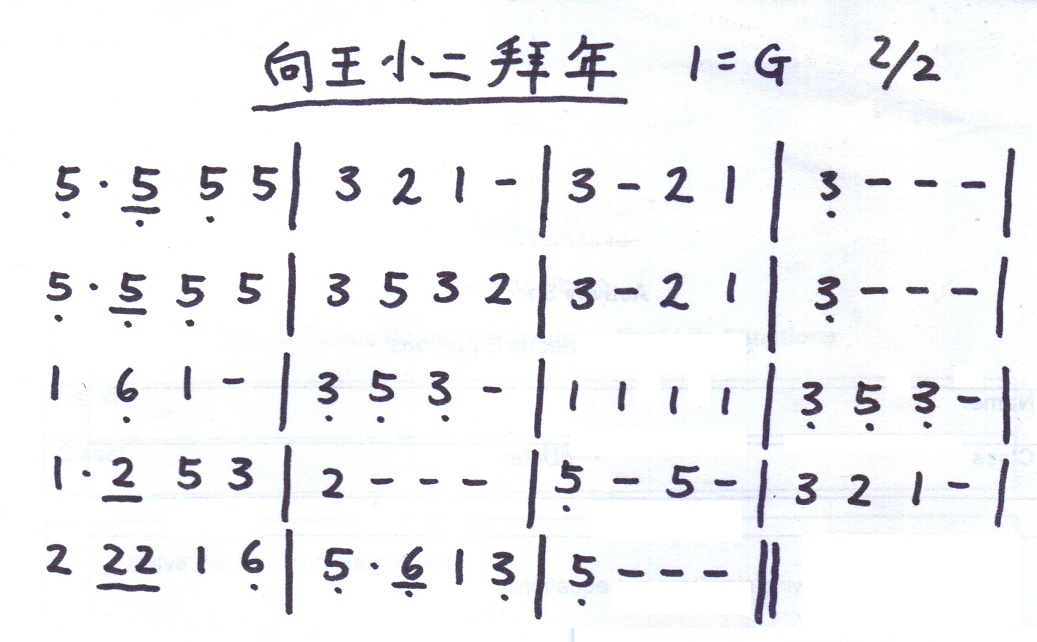 向王小二拜年 1=G 2/2
5·5 5 5 | 3 2 1 - | 3 - 2 1 | 3 - - - |
5·5 5 5 | 3 5 3 2 | 3 - 2 1 | 3 - - - |
1 6 1 - | 3 5 3 - | 1 1 1 1 | 3 5 3 - |
1·2 5 3 | 2 - - - | 5 - 5 - | 3 2 1 - |
2 22 1 6 | 5·6 1 3 | 5 - - - ||